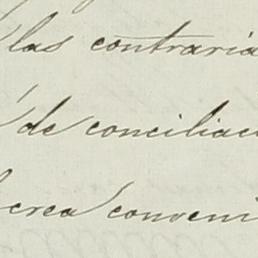 las contraria
de conciliac
crea conveni